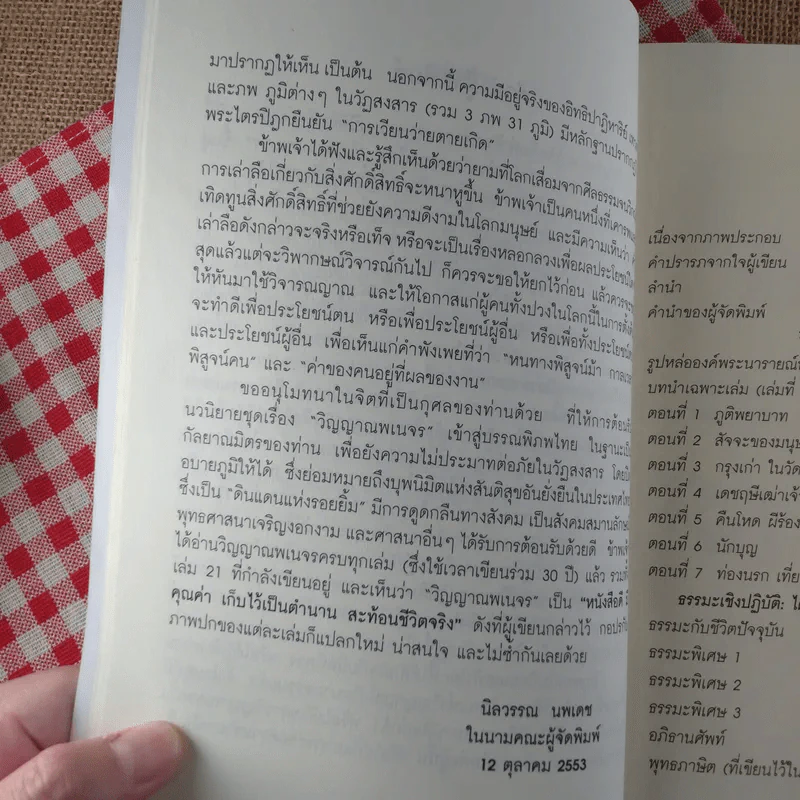 มาปรากฏให้เห็น เป็นต้น นอกจากนี้ ความมีอยู่จริงของอิทธิปาฏิหาริย์
และภพ ภูมิต่างๆ ในวัฏสงสาร (รวม 3 ภพ 31 ภูมิ) มีหลักฐานปรากฏ
พระไตรปิฎกยืนยัน “การเวียนว่ายตายเกิด”
ข้าพเจ้าได้ฟังและรู้สึกเห็นด้วยว่ายามที่โลกเสื่อมจากศีลธรรมจน
การเล่าลือเกี่ยวกับสิ่งศักดิ์สิทธิ์จะหนาหูขึ้น ข้าพเจ้าเป็นคนหนึ่งที่เคารพ
เทิดทูนสิ่งศักดิ์สิทธิ์ที่ช่วยยังความดีงามในโลกมนุษย์ และมีความเห็นว่า
เล่าลือดังกล่าวจะจริงหรือเท็จ หรือจะเป็นเรื่องหลอกลวงเพื่อผลประโยชน์
สุดแล้วแต่จะวิพากษณ์วิจารณ์กันไป ก็ควรจะขอให้ยกไว้ก่อน แล้วควรจะ
ให้หันมาใช้วิจารณญาณ และให้โอกาสแก่ผู้คนทั้งปวงในโลกนี้ในการตั้งใจ
จะทำดีเพื่อประโยชน์ตน หรือเพื่อประโยชน์ผู้อื่น หรือเพื่อทั้งประโยชน์ตน
และประโยชน์ผู้อื่น เพื่อเห็นแก่คำพังเพยที่ว่า “หนทางพิสูจน์ม้า กาลเวลา
พิสูจน์คน” และ “ค่าของคนอยู่ที่ผลของงาน”
ขออนุโมทนาในจิตที่เป็นกุศลของท่านด้วย ที่ให้การต้อนรับ
นวนิยายชุดเรื่อง “วิญญาณพเนจร” เข้าสู่บรรณพิภพไทย ในฐานะเป็น
กัลยาณมิตรของท่าน เพื่อยังความไม่ประมาทต่อภัยในวัฏสงสาร โดยปิด
อบายภูมิให้ได้ ซึ่งย่อมหมายถึงบุพนิมิตแห่งสันติสุขอันยั่งยืนในประเทศไทย
ซึ่งเป็น “ดินแดนแห่งรอยยิ้ม” มีการดูดกลืนทางสังคม เป็นสังคมสมานลักษณ์
พุทธศาสนาเจริญงอกงาม และศาสนาอื่นๆ ได้รับการต้อนรับด้วยดี ข้าพเจ้า
ได้อ่านวิญญาณพเนจรครบทุกเล่ม (ซึ่งใช้เวลาเขียนร่วม 30 ปี) แล้ว รวมทั้ง
เล่ม 21 ที่กำลังเขียนอยู่ และเห็นว่า “วิญญาณพเนจร” เป็น “หนังสือดี มี
คุณค่า เก็บไว้เป็นตำนาน สะท้อนชีวิตจริง” ดังที่ผู้เขียนกล่าวไว้ กอปรกับ
ภาพปกของแต่ละเล่มก็แปลกใหม่ น่าสนใจ และไม่ซ้ำกันเลยด้วย
นิลวรรณ นพเดช
ในนามคณะผู้จัดพิมพ์
12 ตุลาคม 2553
เนื่องจากภาพประกอบ
คำปรารภจากใจผู้เขียน
ลำนำ
คำนำของผู้จัดพิมพ์
รูปหล่อองค์พระนารายณ์
บทนำเฉพาะเล่ม (เล่มที่
ตอนที่ 1 ภูติพยาบาท
ตอนที่ 2 สัจจะของมนุษ
ตอนที่ 3 กรุงเก่า ในวัด
ตอนที่ 4 เดชฤษีเฒ่าเจ้า
ตอนที่ 5 คืนโหด ผีร้อง
ตอนที่ 6 นักบุญ
ตอนที่ 7 ท่องนรก เที่ย
ธรรมะเชิงปฏิบัติ:
ธรรมะกับชีวิตปัจจุบัน
ธรรมะพิเศษ 1
ธรรมะพิเศษ 2
ธรรมะพิเศษ 3
อภิธานศัพท์
พุทธภาษิต (ที่เขียนไว้ใน